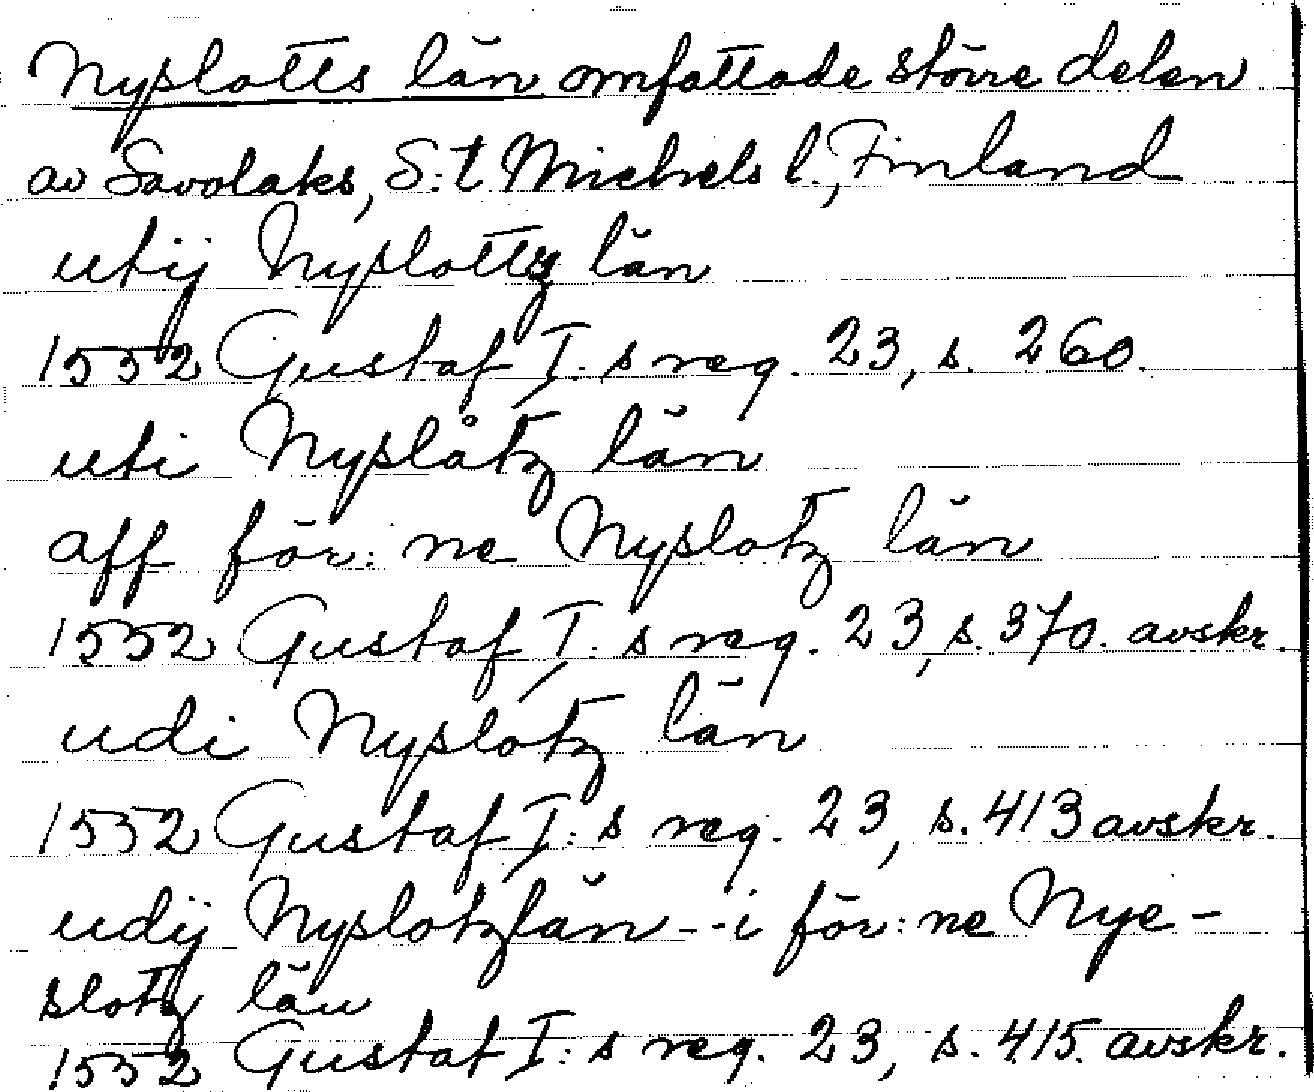 Nyslotts län omfattade större delen
av Savolaks, S:t Michels l., Finland
utij Nyslottz län
1552 Gustaf I:s reg. 23, s. 260.
uti Nyslåtz län
aff för:ne Nyslotz län
1552 Gustaf I:s reg. 23, s. 370. avskr.
udi Nyslotz län
1552 Gustaf I:s reg. 23, s. 413 avskr.
udij Nyslotzlän -- i för:ne Nye-
slotz län
1552 Gustaf I:s reg. 23, s. 415. avskr.